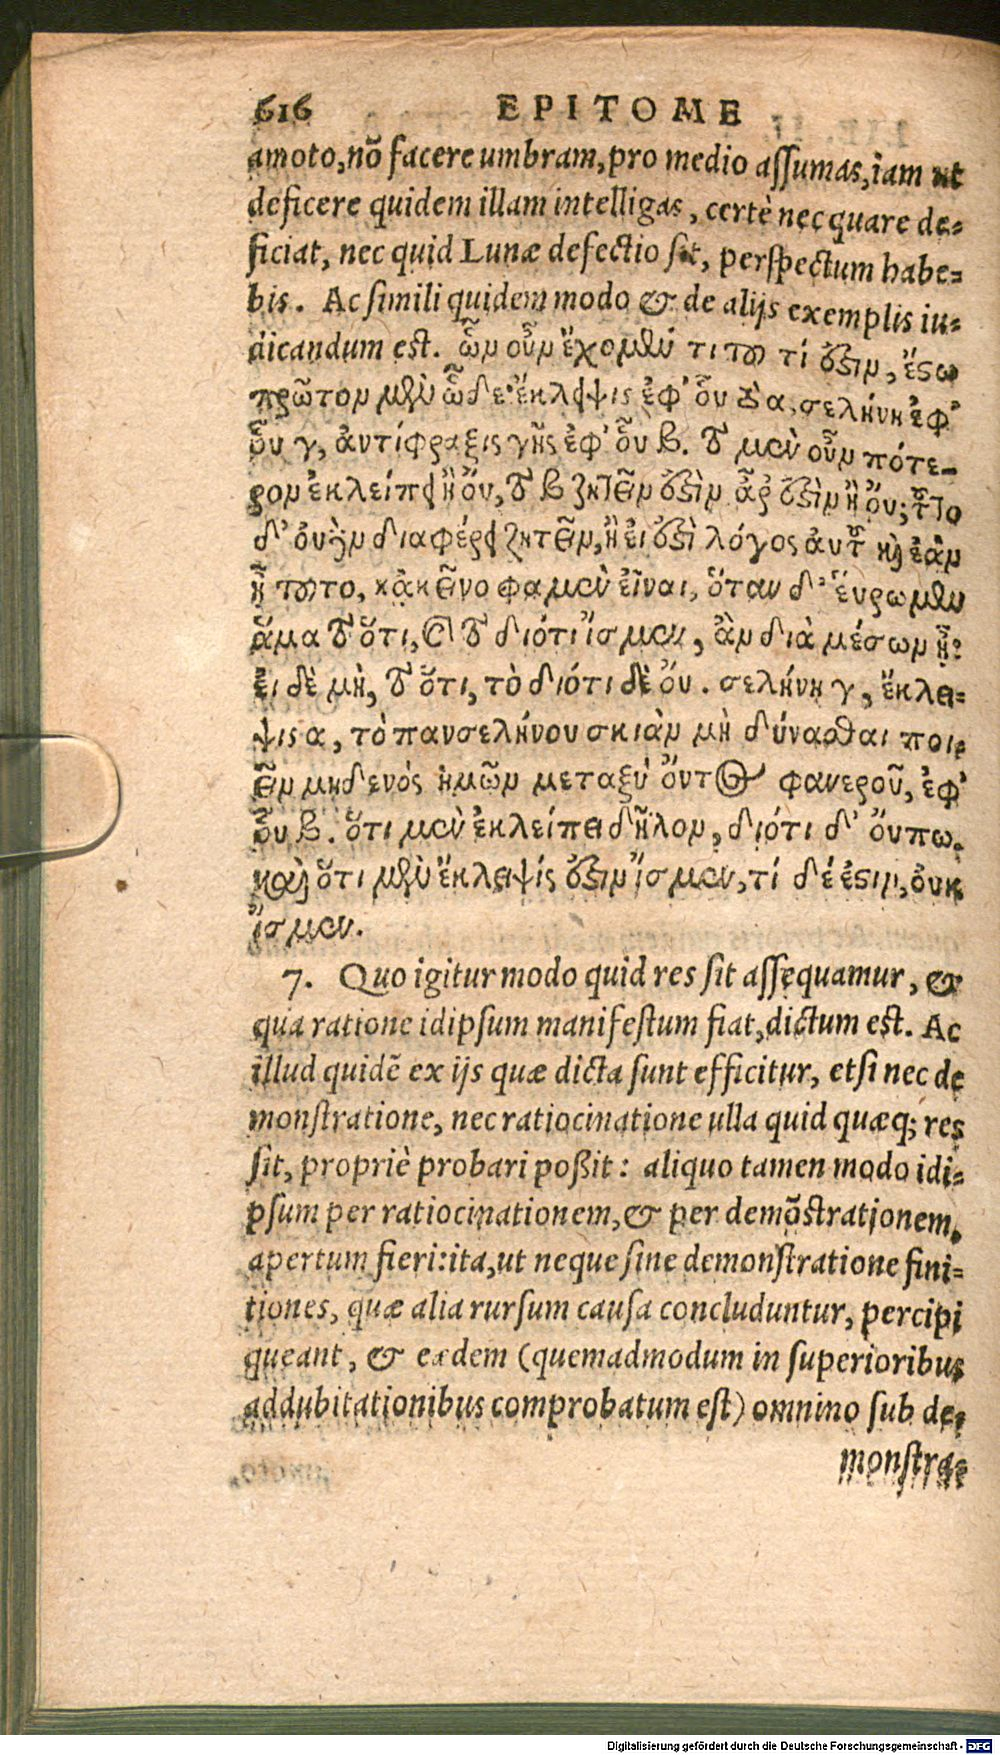 616 EPITOME
amoto, nõ facere umbram, pro medio assumas, iam ut
deficere quidem illam intelligas, certè nec quare de-
ficiat, nec quid Lunæ defectio sit, perspectum habe-
bis. Ac simili quidem modo & de alijs exemplis iu-
dicandum est. ὧν οὖν ἔχομέν τι τοῦ τί ἐστιν, ἔστω
πρῶτον μὲν ὧδε· ἔκλειψις ἐφ' οὗ τὸ α, σελήνη ἐφ'
οὗ γ, ἀντίφραξις γῆς ἐφ' οὗ β. τὸ μὲν οὖν πότε-
ρον ἐκλείπει ἢ οὔ, τὸ β ζητεῖν ἐστὶν ἆρ' ἐστὶν ἢ οὔ; τοῦτο
δ' οὐδὲν διαφέρει ζητεῖν, ἢ εἰ ἐστὶ λόγος αὐτοῦ καὶ ἐὰν
ᾖ τοῦτο, κἀκεῖνο φαμὲν εἶναι, ὅταν δ' εὕρωμεν
ἅμα τὸ ὅτι, καὶ τὸ διότι ἴσμεν, ἂν διὰ μέσων ᾖ:
εἰ δὲ μὴ, τὸ ὅτι, τὸ διότι δὲ οὔ. σελήνη γ, ἔκλει-
ψις α, τὸ πανσελήνου σκιὰν μὴ δύνασθαι ποι-
εῖν μηδενός ἡμῶν μεταξὺ ὄντος φανεροῦ, ἐφ'
οὗ β. ὅτι μὲν ἐκλείπει δῆλον, διότι δ' οὔπω.
καὶ ὅτι μὲν ἔκλειψίς ἐστιν ἴσμεν, τί δέ ἐστιν, οὐκ
ἴσμεν.
7. Quo igitur modo quid res sit assequamur, &
qua ratione idipsum manifestum fiat, dictum est. Ac
illud quidẽ ex ijs quæ dicta sunt efficitur, etsi nec de
monstratione, nec ratiocinatione ulla quid quæq; res
sit, propriè probari poßit: aliquo tamen modo idi-
psum per ratiocinationem, & per demõstrationem,
apertum fieri: ita, ut neque sine demonstratione fini-
tiones, quæ alia rursum causa concluduntur, percipi
queant, & eædem (quemadmodum in superioribus
addubitationibus comprobatum est) omnino sub de-
monstra-
Digitalisierung gefördert durch die Deutsche Forschungsgemeinschaft - DFG